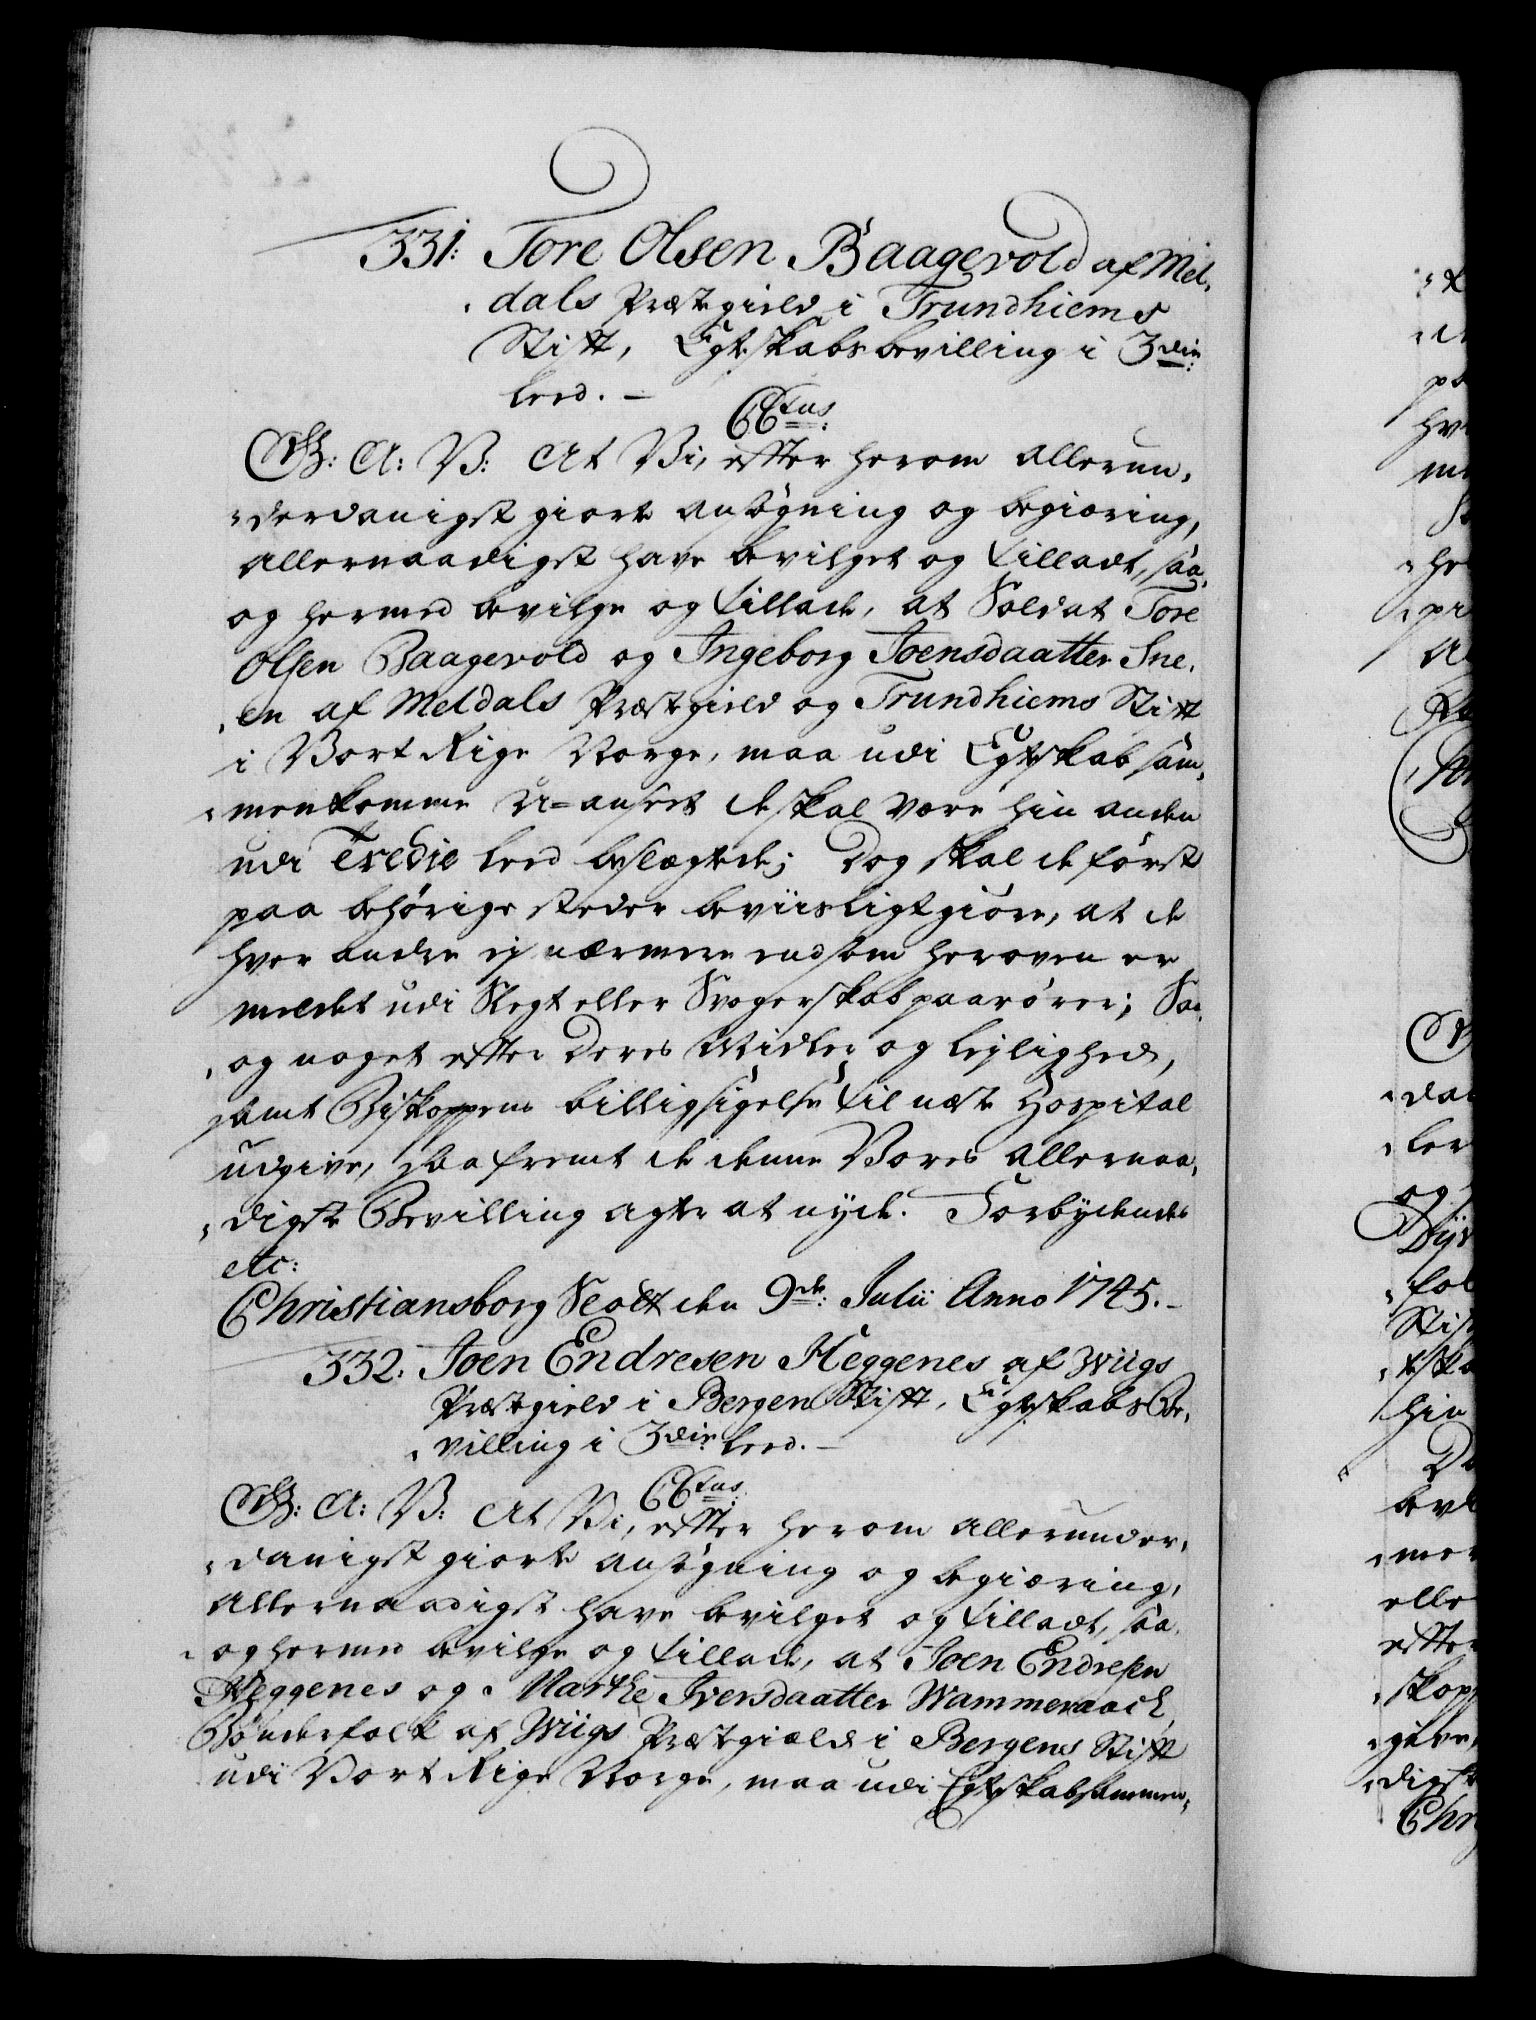 331. Tore Olsen Baagevold af Mel-
dals Præstegield i Trundhiems
Stift, Egteskabs bevilling i 3die
Leed. —
C6tus:
G: A: V: At Vi, efter herom allerun-
derdanigst giorte ansøgning og begiæring,
allernaadigst have bevilget og tilladt, saa
og hermed bevilge og tillade, at Soldat Tore
Olsen Baagevold og Ingeborg Joensdaatter Sne-
en af Meldals Præstegield og Trundhiems Stift
i Vort Rige Norge, maa udi Egteskab sam-
menkomme U-anseet de skal være hin anden
udi Tredie Leed beslægtede; Dog skal de først
paa behørige steder beviisligt giøre, at de
hver andre ej nærmere end som heroven er
meldet udi Slegt eller Svogerskab paarører; Saa
og noget efter Deres Midler og lejlighed,
samt Biskoppens billigsigelse til næste Hospital
udgive, saafremt de denne Vores allernaa-
digste Bevilling agte at nyde. Forbydendes
etc:
Christiansborg Slott den 9de: Julii Anno 1745. -
332. Joen Endresen Heggenes af Wiigs
Præstegield i Bergens Stift, Egteskabs Be-
villing i 3die Leed. —
C6tus:
G: A: V: At Vi, efter herom allerunder-
danigst giorte ansøgning og begiæring,
allernaadigst have bevilget og tilladt, saa
og hermed bevilge og tillade, at Joen Endresen
Heggenes og Marthe Iversdaatter Wammeraach
Bønderfolk af Wiigs Præstegiæld i Bergens Stift
udi Vort Rige Norge, maa udi Egteskab sammen-